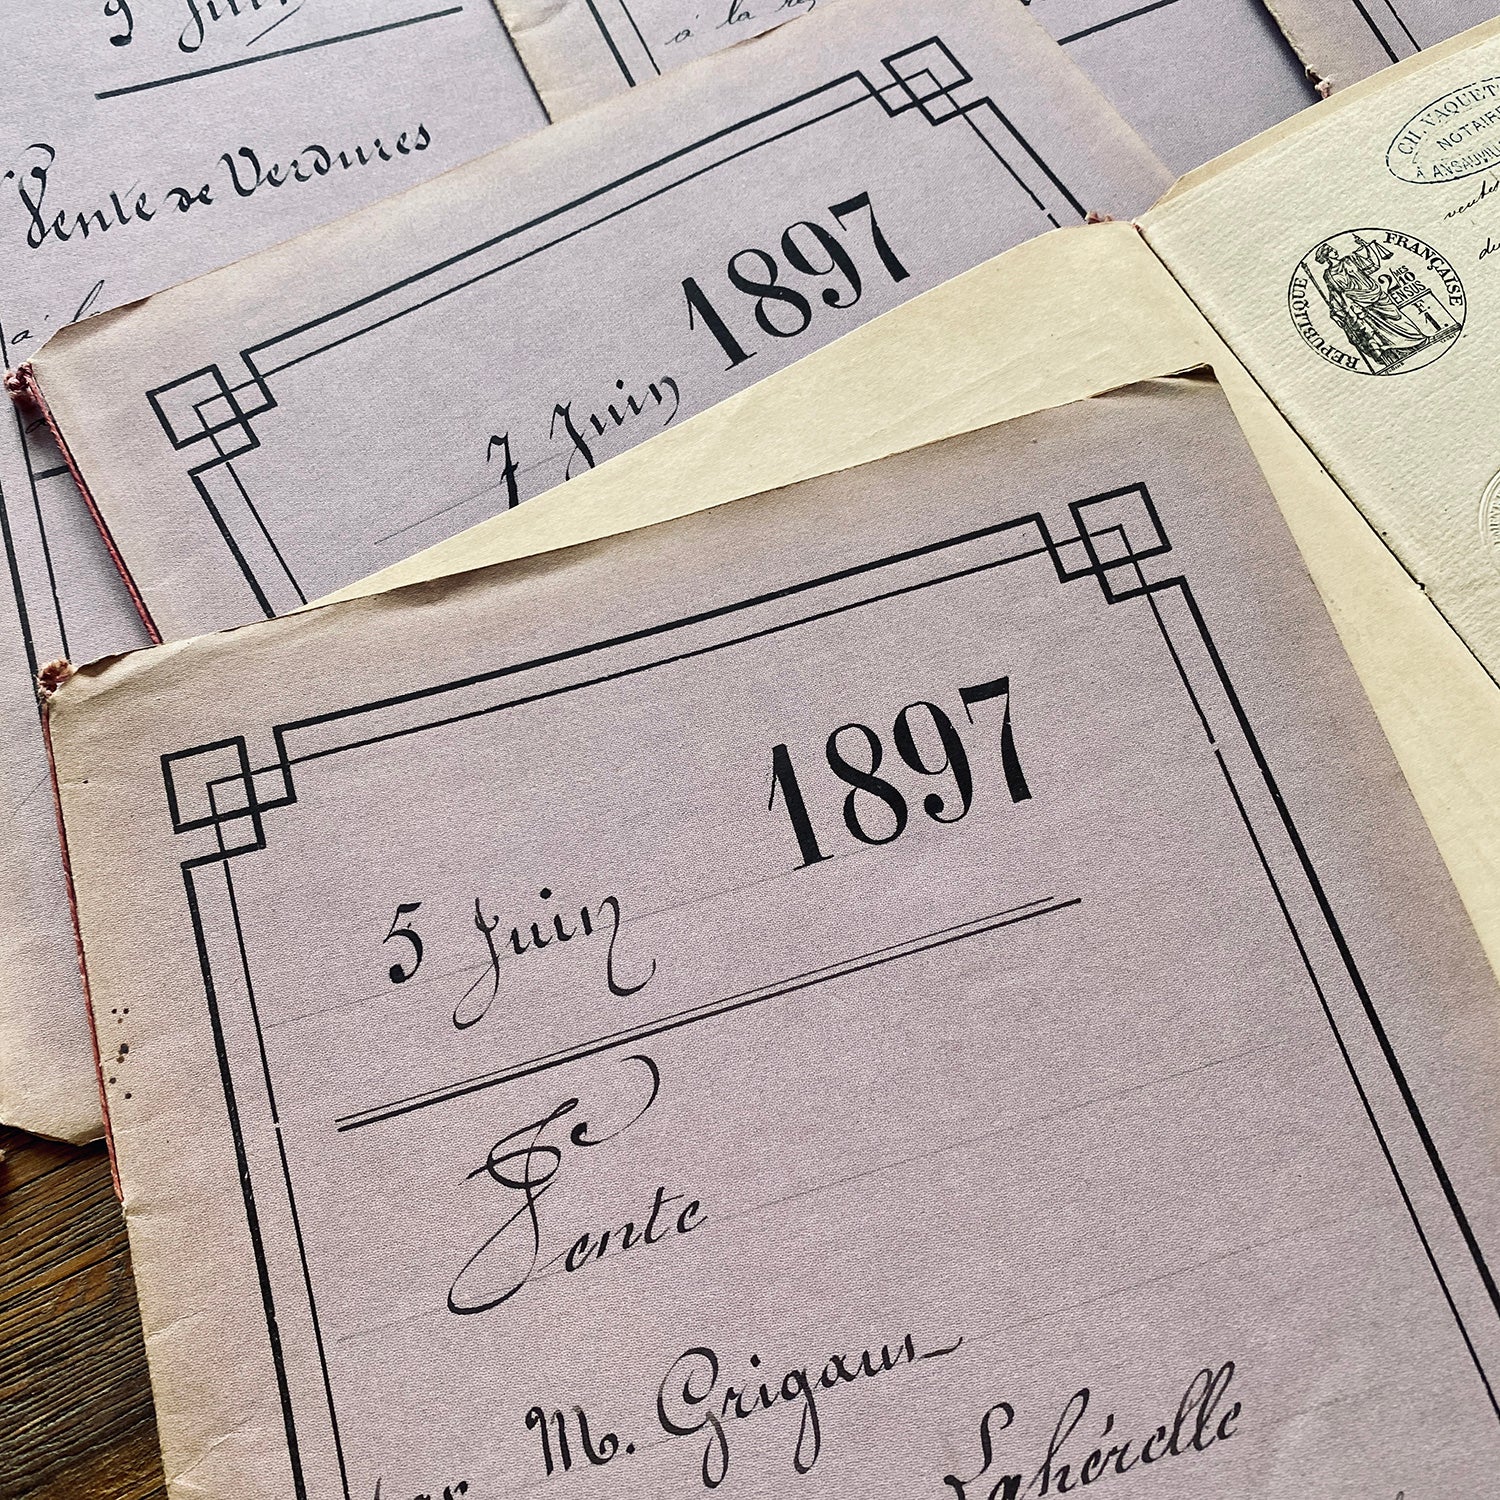 9 Juin
Vente de Verdures
à la
à la
1897
7 Juin
CH. VAQUET
NOTAIRE
A ANSAUVILL
RÉPUBLIQUE FRANÇAISE
2/10
EN SUS
F.
1.
1897
5 Juin
Vente
M. Grigaut
Lahérelle